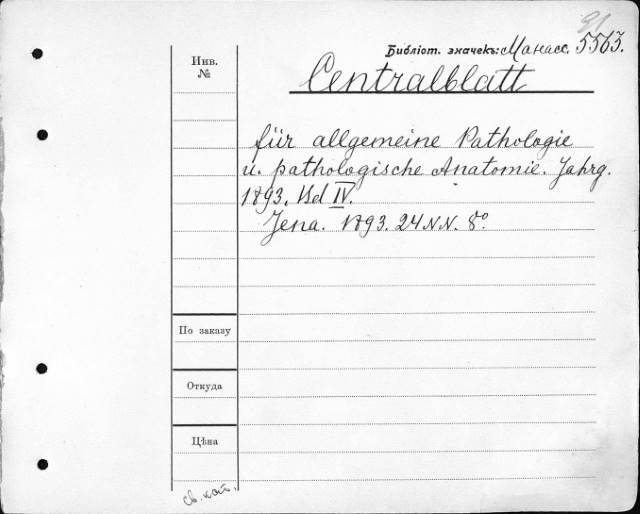 91
Библіот. значекъ: Манасс. 5563.
Инв.
№
Centralblatt
für allgemeine Pathologie
u. pathologische Anatomie. Jahrg.
1893. Bd IV.
Jena. 1893. 24 N.N. 8°.
По заказу
Откуда
Цѣна
св. кат.